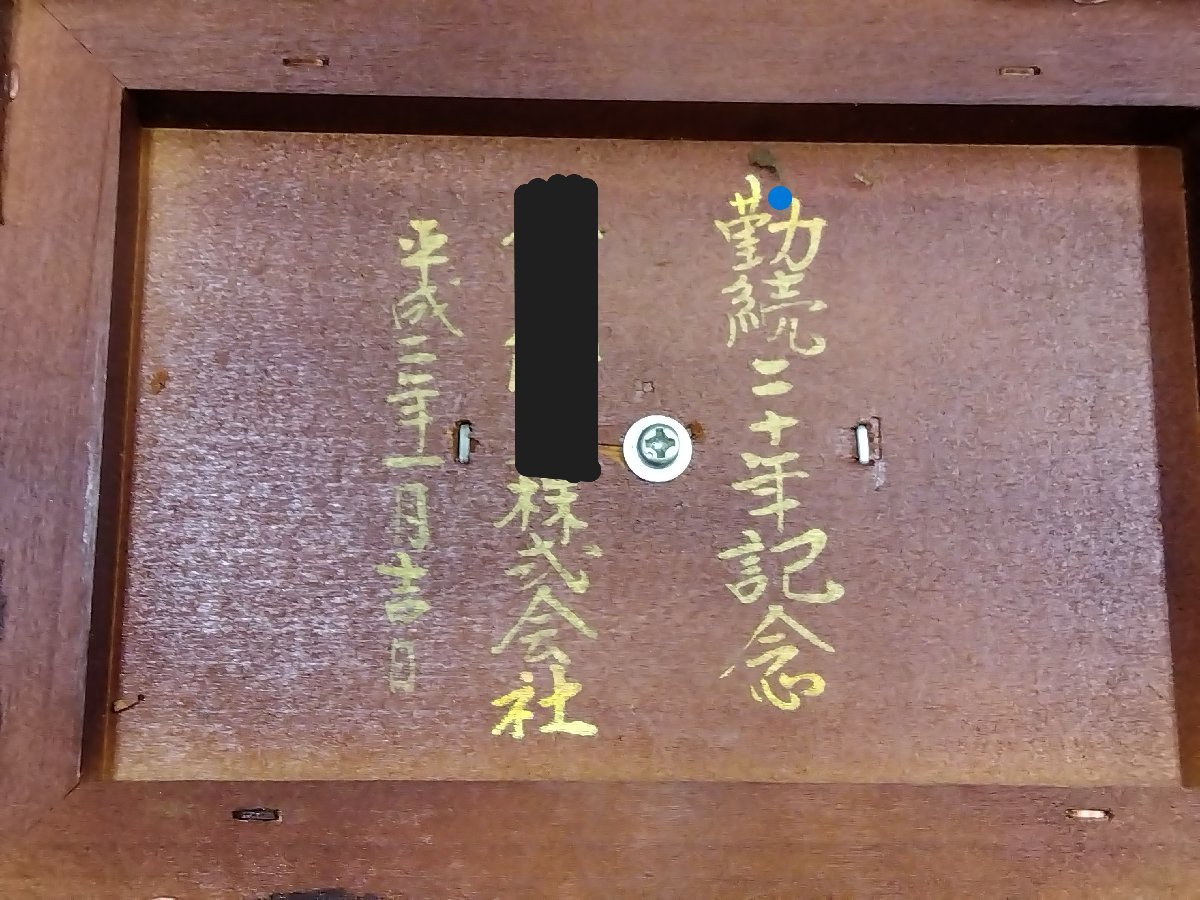 勤続二十年記念
株式会社
平成二年十一月吉日